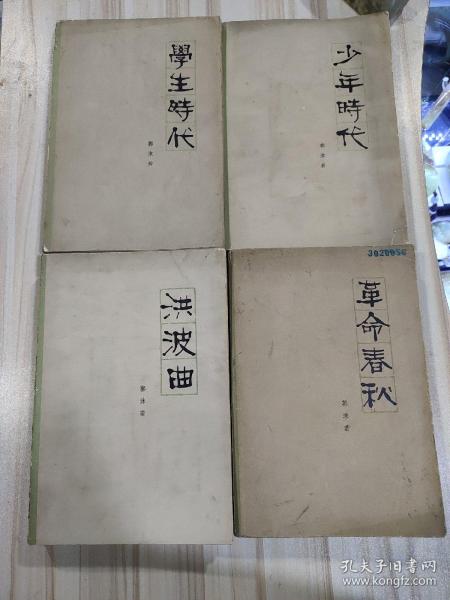 學生時代
郭沫若
少年時代
郭沫若
洪波曲
郭沫若
3020956
革命春秋
郭沫若
孔夫子旧书网
www.kongfz.com